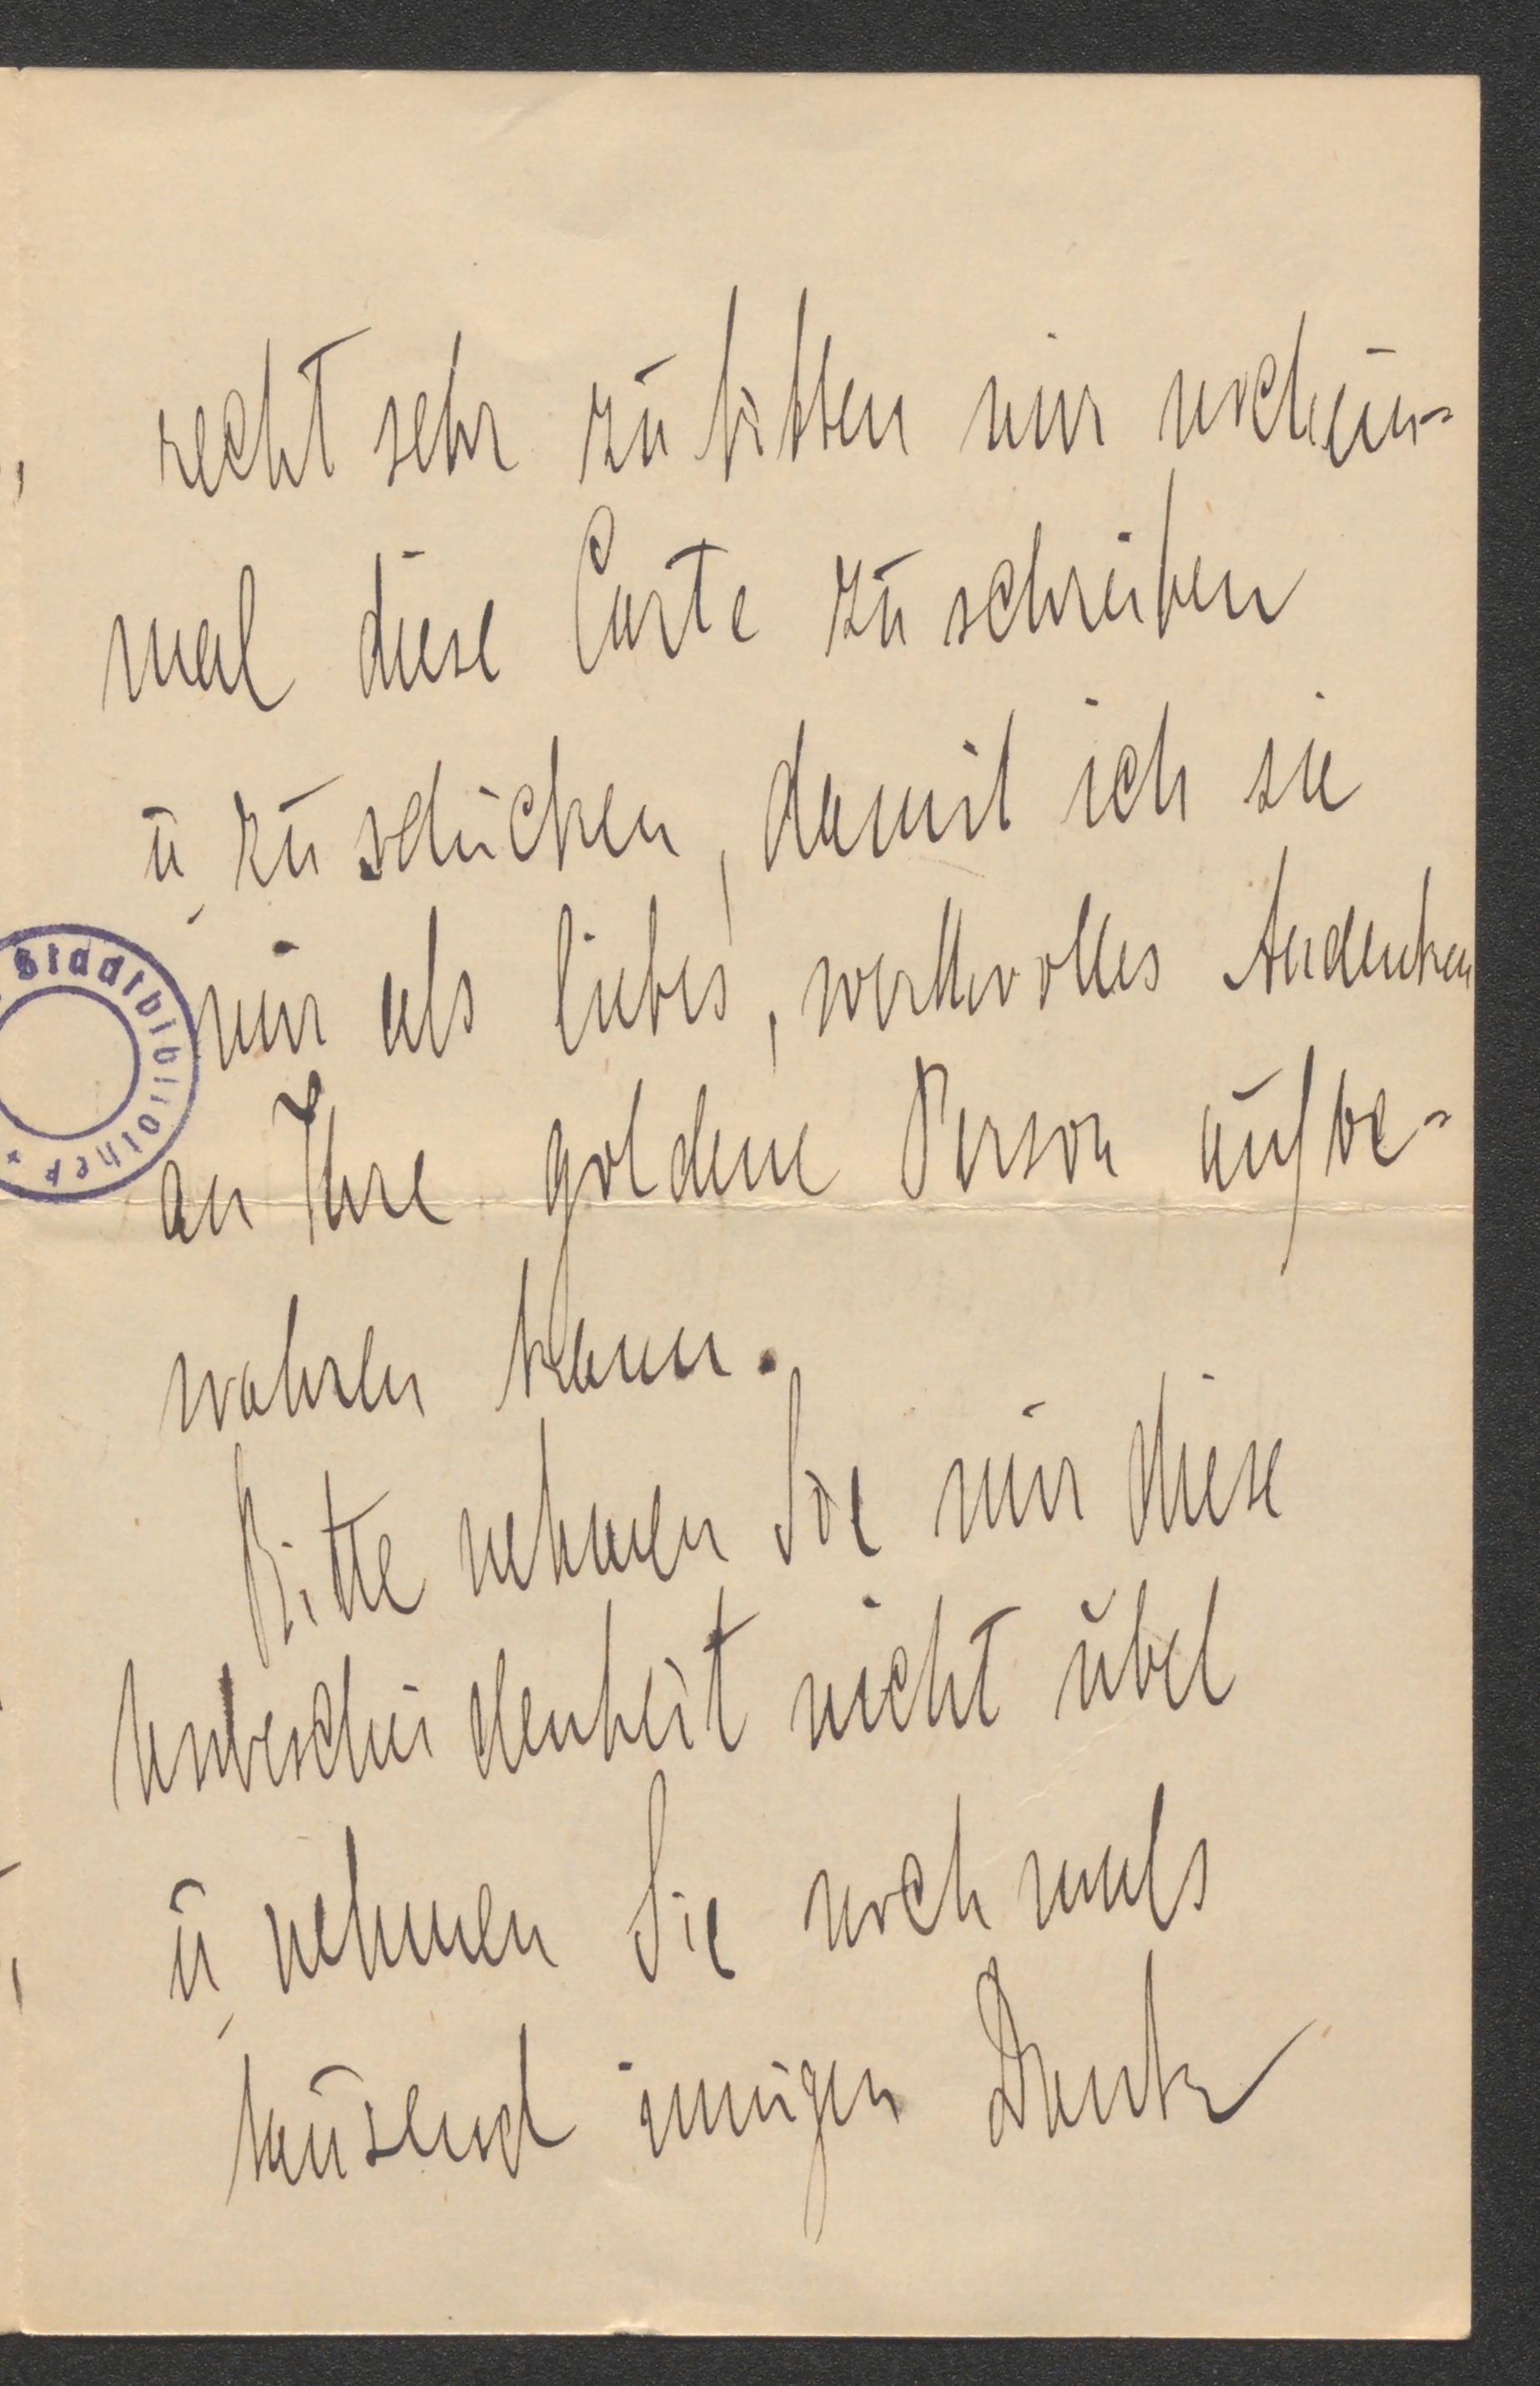 recht sehr zu bitten mir noch ein-
mal diese Carte zu schreiben
u. zu schicken, damit ich sie
mir als liebes, wertvolles Andenken
an Ihre goldene Person aufbe-
wahren kann.
Bitte nehmen Sie mir diese
Unbescheidenheit nicht übel
u. nehmen Sie nochmals
tausend innigen Dank
Stadtbibliothek *